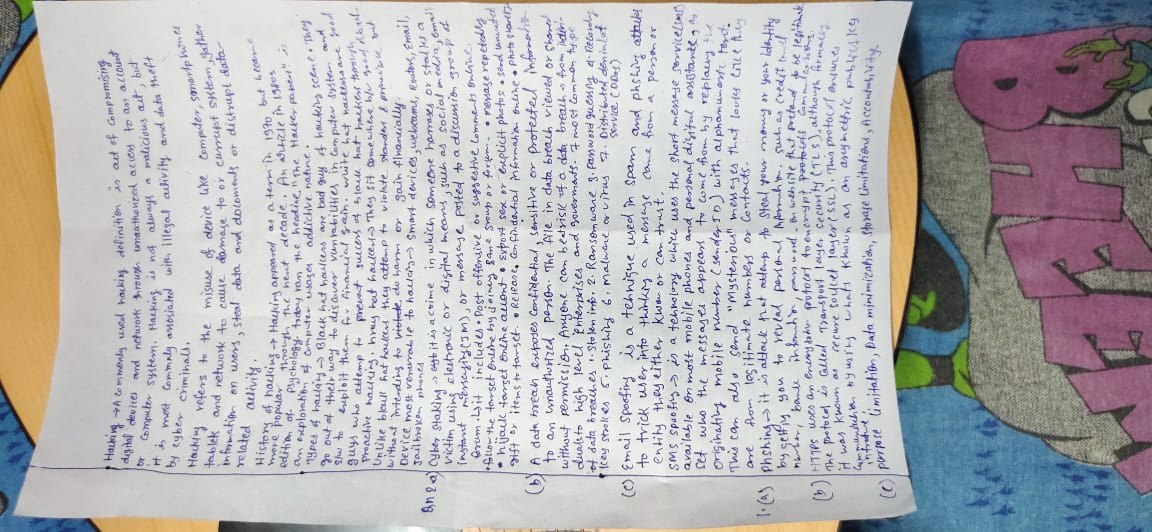 • Hacking → A commonly used hacking definition is act of compromising
digital devices and network through unauthorized access to an account
or computer system. Hacking is not always a malicious act, but
it is most commonly associated with illegal activity and data theft
by cyber criminals.
Hacking refers to the misuse of device like computer, smartphones
tablets and network to cause damage to or currupt system, gather
information on users, steal data and documents or distrupt data-
related activity.
History of hacking → Hacking appeared as a term in 1970, but became
more popular through the next decade. An article in 1980s
edition of Psychology today ran the headline, "The Hacker papers" is
an exploration of computer usages addictive nature.
• Types of hacking → Black hat hackers are bad guy of hacking scene. They
go out of their way to discover vunrabilities in computer system and
s/w to exploit them for financial gain. White hat hackers are good
guys who attemp to prevent success of black hat hackers through
proactive hacking. Gray hat hackers → They sit somewhere b/w good & bad.
Unlike black hat hackers they attemp to violate standers & principle but
without intending to do harm or gain financially.
Device most venurable to hacking → smart devices, webcams, Routers, Email,
Jailbroken phones
Qn 2 a) Cyber staking → it is a crime in which someone harrases or stalks a
victim using electronic or digital means, such as social media, email
instant messaging (IM), or message posted to a discussion group or
forum. It includes • Post offensive or suggestive comments online
• follow the target online by joining same group or forum. • message repetedly
• hijack target online accont • Export sex or explicit photos • send unwanted
gift or items to target. • Release confindantial information online • photo
(b) A data breach exposes confidential, sensitive or protected information
to an unauthorized person. The file in data breach viewed or shared
without permission. Anyone can be at risk of a data breach → from indivi-
duals to high level enterprises and goverments. 7 most common type
of data breaches 1. Stolen info. 2. Ransomware 3. password guessing 4. Recording
key strokes 5. phishing 6. Malware or virus 7. Distributed denial of
service (DDos)
(c) Email Spoofing is a tehnique used in spam and phshing attacks
to trick user into thinking a message came from a person or
entity they either know or can trust.
SMS spoofing → is a tehnology which uses the short message service (SMS)
available on most mobile phones and personal digital assistants, to
set who the messages appears to come from by replacing the
originating mobile number (sender ID) with alphanumeric text.
This can also send "Mysterious" messages that looks like they
are from logitimate numbers or contacts.
1. (a) Phshing → it is attack that attemp to steal your money or your identity
by getting you to reveal personal information. such as credit card
number, bank information, password. on website that pretend to be legitimate
(b) HTTPs uses an encryption protocol to encrypt protocols communications.
The protocol is called Transport layer security (TLS), although formally
it was known as secure socket layer (SSL). This protocol ensures
communication by using whats known as an asymettric public key
infrature.
(c) purpose limitation, Data minimization, storage limitations, Accontability.
BHEEM